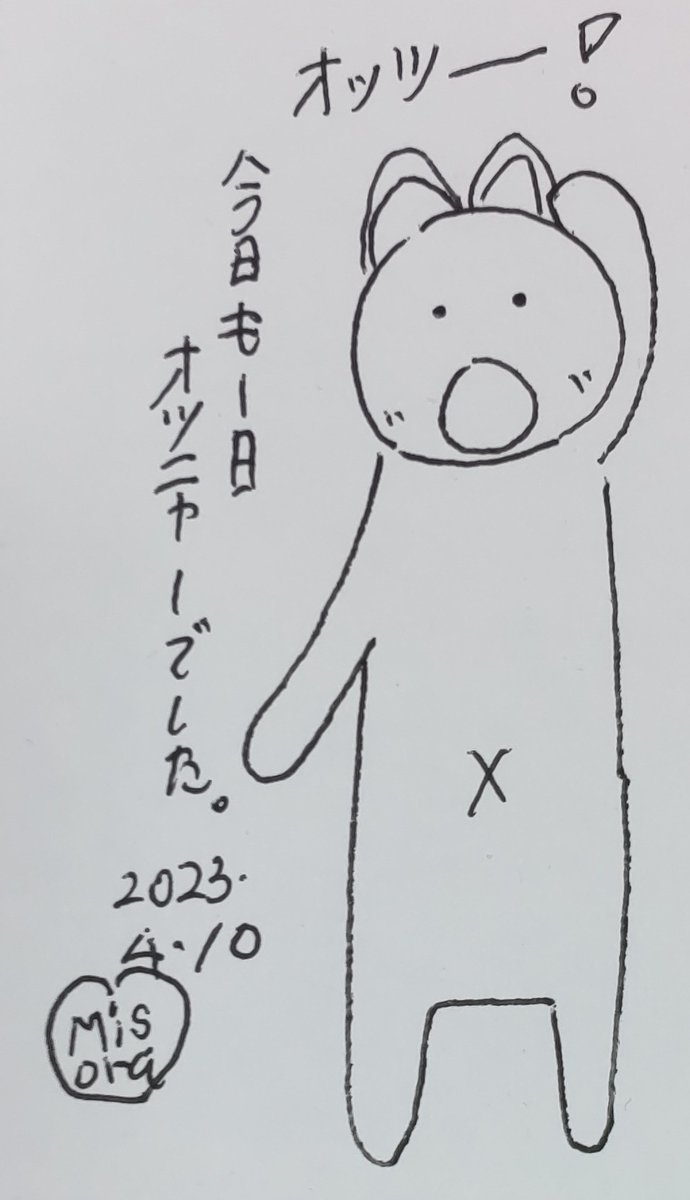 オッツー!
今日も一日
オツニャーでした。
2023.
4.10
Mis
ora